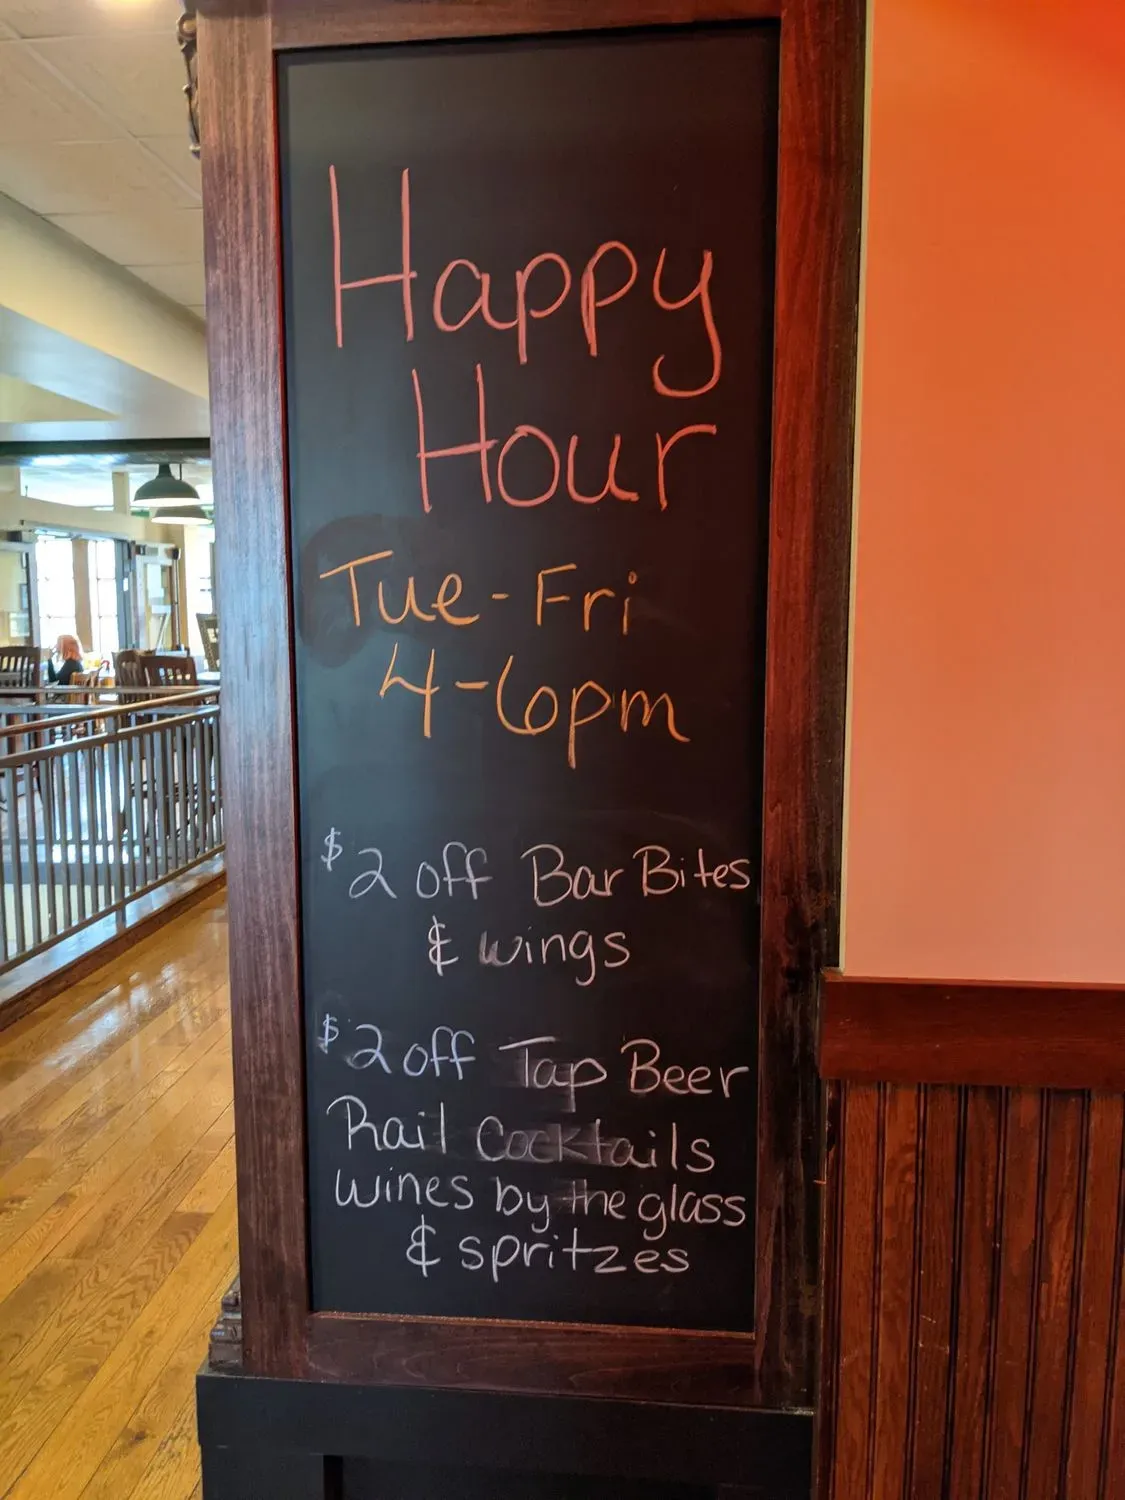 Happy
Hour
Tue-Fri
4-6pm
$2 off Bar Bites
& wings
$2 off Tap Beer
Rail Cocktails
wines by the glass
& spritzes